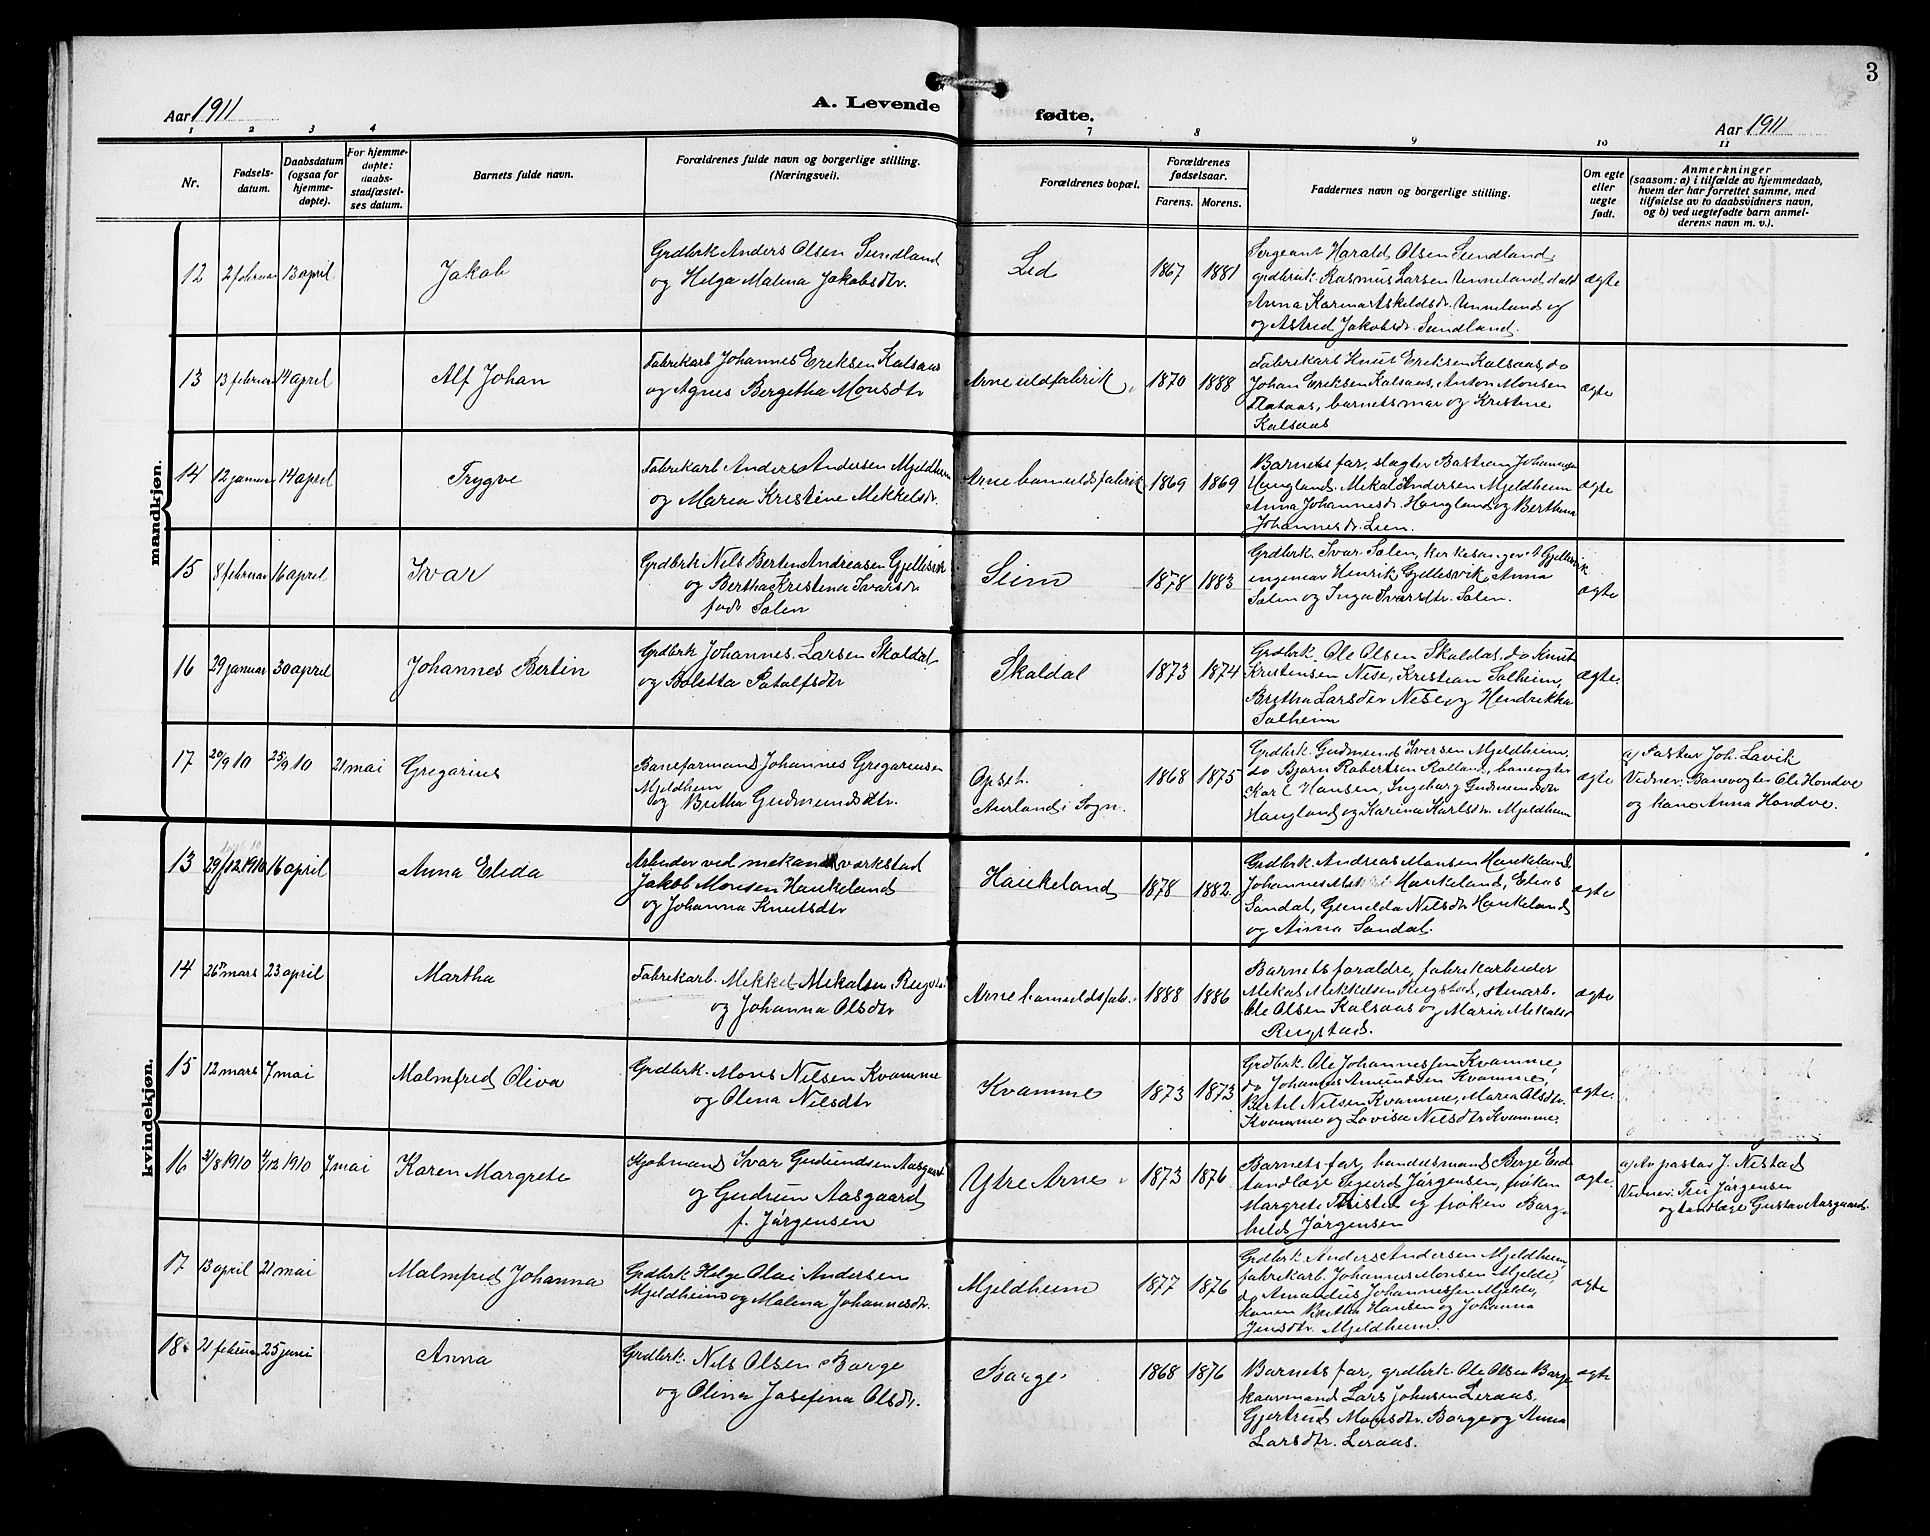 3
Aar 1911
A. Levende
fødte.
Aar 1911
1 2 3 4 7 8 9 10 11
Nr.
Fødsels-
datum.
Daabsdatum
(ogsaa for
hjemme-
døpte).
For hjemme-
døpte:
daabs-
stadfæstel-
ses datum.
Barnets fulde navn.
Forældrenes fulde navn og borgerlige stilling.
(Næringsvei).
Forældrenes bopæl.
Forældrenes
fødselsaar.
Farens. Morens.
Faddernes navn og borgerlige stilling.
Om egte
eller
uegte
født.
Anmerkninger
(saasom: a) i tilfælde av hjemmedaab,
hvem der har forrettet samme, med
tilføielse av to daabsvidners navn,
og b) ved uegtefødte barn anmel-
derens navn m. v.).
mandkjøn.
12 2 februar 13 april Jakob
Grdbrk Anders Olsen Sundland
og Helga Malena Jakobsdtr.
Lid 1867 1881
Sergeant Harald Olsen Sundland,
grdbruk Rasmus Larsen Unneland,
Anna Karina Askeldsdr. Unneland og
og Astrid Jakobsdr. Sundland.
ægte
13 13 februar 14 april Alf Johan
Fabrikarb Johannes Eriksen Kalsaas
og Agnes Bergetha Monsdtr
Arne uldfabrik 1870 1888
Fabrikarb Knut Eriksen Kalsaas, do
Johan Eriksen Kalsaas, Anton Monsen
Flataas, barnets mor og Kristine
Kalsaas
ægte
14 12 januar 14 april Trygve
Fabrikarb Anders Andersen Mjeldheim
og Maria Kristine Mekkelsdr.
Arne bomuldsfabrik 1869 1869
Barnets far, slagter Bastian Johannesen
Haugland, Mikal Andersen Mjeldheim
Anna Johannesdr. Haugland og Berthina
Johannesdr. Lien.
ægte
15 8 februar 16 april Ivar
Grdbrk Nils Bertin Andreasen Gjellesvik
og Bertha Kristina Ivarsdr
født Salen
Seim 1878 1883
Grdbrk. Ivar Salen, kirkesanger Gjellesvik
ingeniør Henrik Gjellesvik, Anna
Salen og Inga Ivarsdtr. Salen.
ægte
16 29 januar 30 april Johannes Bertin
Grdbrk Johannes Larsen Skaldal
og Boletta Rotolfsdtr
Skaldal 1873 1874
Grdbrk. Ole Olsen Skaldal, do Knut
Kristensen Nise, Kristian Solheim,
Britha Larsdtr Nise og Hendrikka
Solheim
ægte.
17 20/9 10 25/9 10 21 mai Gregarius
Baneformand Johannes Gregariusen
Mjeldheim
og Britha Gudmundsdtr.
Opset
Aurland i Sogn. 1868 1875
Grdbrk. Gudmund Iversen Mjeldheim,
do Bjørn Robertsen Rolland, banevogter
Karl Hansen, Ingeborg Gudmundsdtr
Haugland og Karina Karlsdtr. Mjeldheim
ægte
a) Pastor Joh. Lavik
Vidner: Banevogter Ole Hondve
og kone Anna Hondve.
kvindekjøn.
13 29/12 1910 16 april Anna Elida
Arbeider ved mekan. værkstad
Jakob Monsen Haukeland
og Johanna Knutsdtr
Haukeland 1878 1882.
Grdbrk. Andreas Monsen Haukeland,
Johannes Haukeland, Elias
Sandal, Gunelda Nilsdtr Haukeland
og Anna Sandal.
ægte
14 26 mars 23 april Martha
Fabrikarb. Mikkel Mikalsen
og Johanna Olsdtr
Arne bomuldsfab. 1888 1886
Barnets forældre, fabrikarbeider
Mikal Mikkelsen Rugstad, stenarb.
Ole Olsen Kalsaas og Maria Mikalsd
Rugstad.
ægte
15 12 mars 7 mai Malmfred Oliva
Grdbrk. Mons Nilsen Kvamme
og Olena Nilsdtr
Kvamme 1873 1873
Grdbrk. Ole Johannessen Kvamme,
do Johannes Amundsen Kvamme,
Bertil Nilsen Kvamme, Maria Olsdtr.
Kvamme og Lovisa Nilsdtr Kvamme.
ægte.
16 3/8 1910 4/12 1910 7 mai Karen Margrete
Kjøbmand Ivar Gudundsen Aasgaard
og Gudrun Aasgaard
f. Jørgensen
Ytre Arne 1873 1876
Barnets far, handelsmand Børge
tandlæge Sigurd Jørgensen, frøken
Margrete og frøken Borg-
hild Jørgensen
ægte.
a) Av pastor J. Nistad
Vidner: Fru Jørgensen
og tandlæge Gustav Aasgaard.
17 13 april 21 mai Malmfred Johanna
Grdbrk Helge Olai Andersen
Mjeldheim og Malena Johannesdtr.
Mjeldheim 1877 1876
Grdbrk. Anders Andersen Mjeldheim,
fabrikarb. Johannes Monsen Mjelde,
do Amandus Johannessen Mjelde,
konen Britha Hansen og Johanna
Jensdtr. Mjeldheim.
ægte
18. 21 februar 25 juni Anna
Grdbrk. Nils Olsen Borge
og Olina Josefina Olsdr.
Borge 1868 1876
Barnets far, grdbrk Ole Olsen Borge
kaarmand Lars Johnsen Leraas,
Gjertrud Monsdtr. Borge og Anna
Larsdtr. Leraas.
ægte